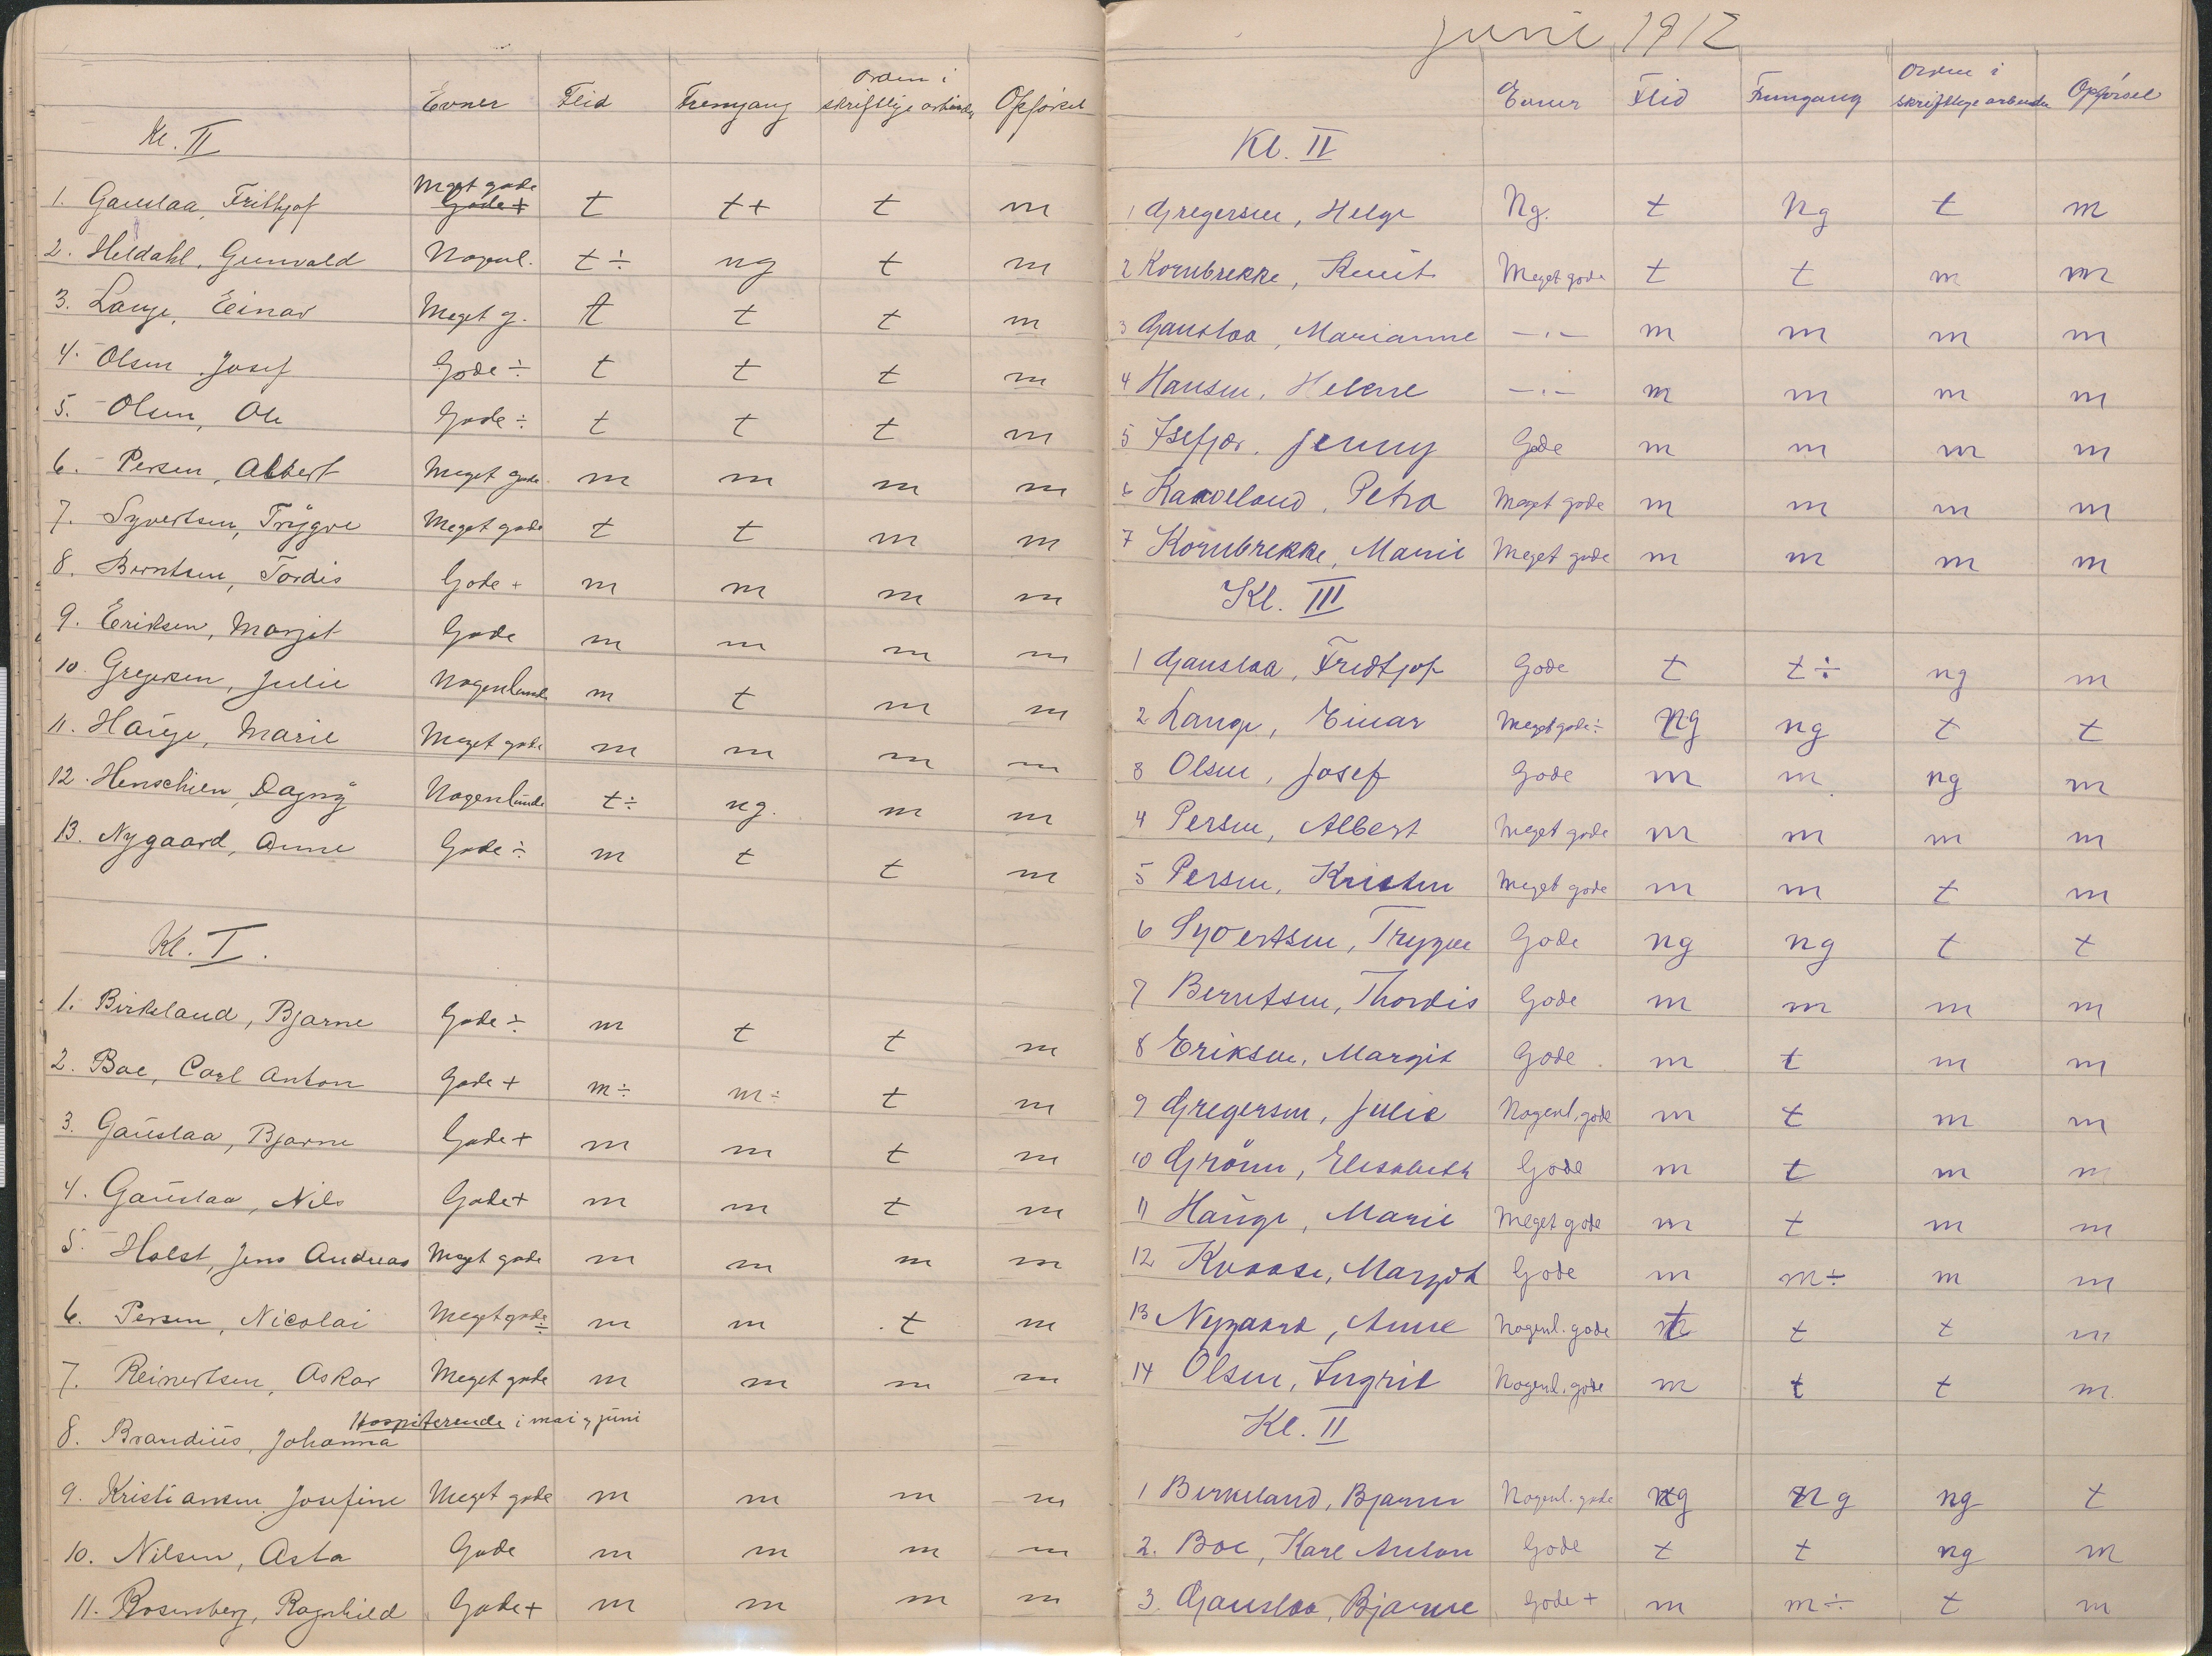 Evner Flid Fremgang Orden i skriftlige arbeider Opførsel
Kl. II
1. Gauslaa, Frithjof Meget gode Gode + t t+ t m
2. Heldahl, Gunvald Nogenl. t÷ ng t m
3. Lange, Einar Meget g. t t t m
4. Olsen, Josef Gode ÷ t t t m
5. Olsen, Ole Gode ÷ t t t m
6. Persen, Albert Meget gode m m m m
7. Syvertsen, Trygve Meget gode t t m m
8. Berntsen, Tordis Gode + m m m m
9. Eriksen, Margit Gode m m m m
10. Gregersen, Julie Nogenlunde m t m m
11. Hauge, Marie Meget gode m m m m
12. Henschien, Dagny Nogenlunde t÷ ng. m m
13. Nygaard, Anne Gode ÷ m t t m
Kl. I.
1. Birkeland, Bjarne Gode ÷ m t t m
2. Boe, Carl Anton Gode + m÷ m÷ t m
3. Gauslaa, Bjarne Gode + m m t m
4. Gauslaa, Nils Gode + m m t m
5. Holst, Jens Andreas Meget gode m m m m
6. Persen, Nicolai Meget gode ÷ m m t m
7. Reinertsen, Oskar Meget gode m m m m
8. Brandius, Johanna Hospiterende i mai og juni
9. Kristiansen, Josefine Meget gode m m m m
10. Nilsen, Asta Gode m m m m
11. Rosenberg, Ragnhild Gode + m m m m
Juni 1912
Evner Flid Fremgang Orden i skriftlige arbeider Opførsel
Kl. II
1 Gregersen, Helge Ng. t Ng t m
2 Kornbrekke, Knut Meget gode t t m m
3 Gauslaa, Marianne —"— m m m m
4 Hansen, Helene —"— m m m m
5 Isefjær, Jenny Gode m m m m
6 Kaaveland, Petra Meget gode m m m m
7 Kornbrekke, Marie Meget gode m m m m
Kl. III
1 Gauslaa, Fredtjof Gode t t÷ ng m
2 Lange, Einar Meget gode ÷ ng ng t t
3 Olsen, Josef Gode m m ng m
4 Persen, Albert Meget gode m m m m
5 Persen, Kristen Meget gode m m t m
6 Syvertsen, Trygve Gode ng ng t t
7 Berntsen, Thordis Gode m m m m
8 Eriksen, Margit Gode m t m m
9 Gregersen, Julie Nogenl. gode m t m m
10 Grönn, Elisabeth Gode m t m m
11 Hauge, Marie Meget gode m t m m
12 Kvaase, Margot Gode m m÷ m m
13 Nygaard, Anne Nogenl. gode t t t m
14 Olsen, Ingrid Nogenl. gode m t t m
Kl. II
1 Birkeland, Bjarne Nogenl. gode ng ng ng t
2. Boe, Karl Anton Gode t t ng m
3. Gauslaa, Bjarne Gode + m m÷ t m